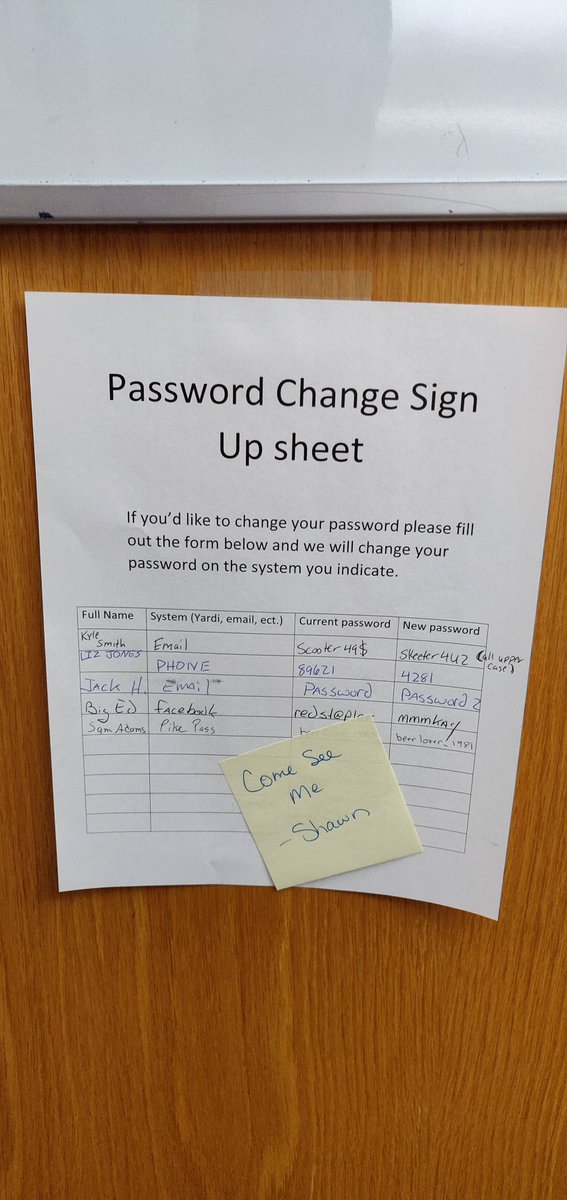 Password Change Sign
Up sheet
If you'd like to change your password please fill
out the form below and we will change your
password on the system you indicate.
Full Name System (Yardi, email, ect.) Current password New password
Kyle Smith Email Scooter49$ Skeeter4U2 (all upper case)
LIZ JONES PHONE 89621 4281
Jack H. EMAIL PASSWORD PASSWORD 2
Big Ed facebook mmmkay
Sam Adams Pike Pass beerlover_1981
Come See
Me
- Shawn